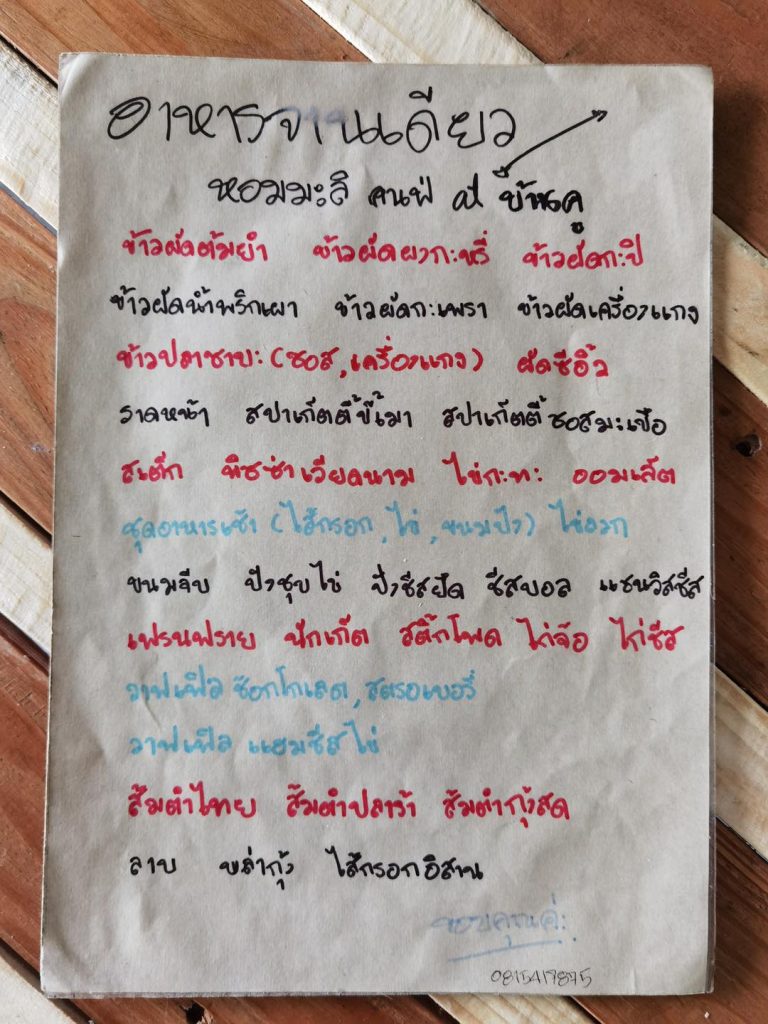 อาหารจานเดียว
หอมมะลิ คนฟ at บ้านคู
ข้าวผัดต้มยำ ข้าวผัดผงกะหรี่ ข้าวผัดกะปิ
ข้าวผัดน้ำพริกเผา ข้าวผัดกะเพรา ข้าวผัดเครื่องแกง
ข้าวปลาซาบะ (ซอส, เครื่องแกง) ผัดซีอิ้ว
ราดหน้า สปาเก็ตตี้ขี้เมา สปาเก็ตตี้ซอสมะเขือ
สเต็ก พิซซ่าเวียดนาม ไข่กะทะ ออมเล็ต
ชุดอาหารเช้า (ไส้กรอก, ไข่, ขนมปัง) ไข่ลวก
ขนมจีบ ปังชุบไข่ ปังชีสยืด ชีสบอล แซนวิสชีส
เฟรนฟราย นักเก็ต สติ๊กโพด ไก่จ้อ ไก่ชีส
วาฟเฟิล ช็อกโกเลต, สตรอเบอรี่
วาฟเฟิล แฮมชีสไข่
ส้มตำไทย ส้มตำปลาร้า ส้มตำกุ้งสด
ลาบ พล่ากุ้ง ไส้กรอกอิสาน
ขอบคุณค่ะ